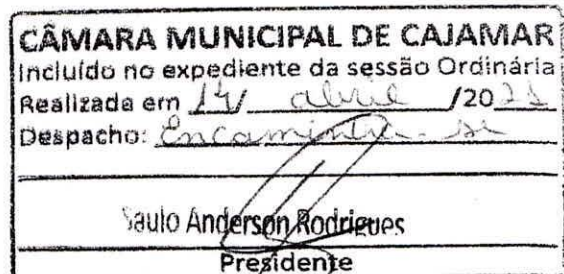 CÂMARA MUNICIPAL DE CAJAMAR
Incluído no expediente da sessão Ordinária
Realizada em 14/ abril /2021
Despacho: Encaminha-se
Saulo Anderson Rodrigues
Presidente